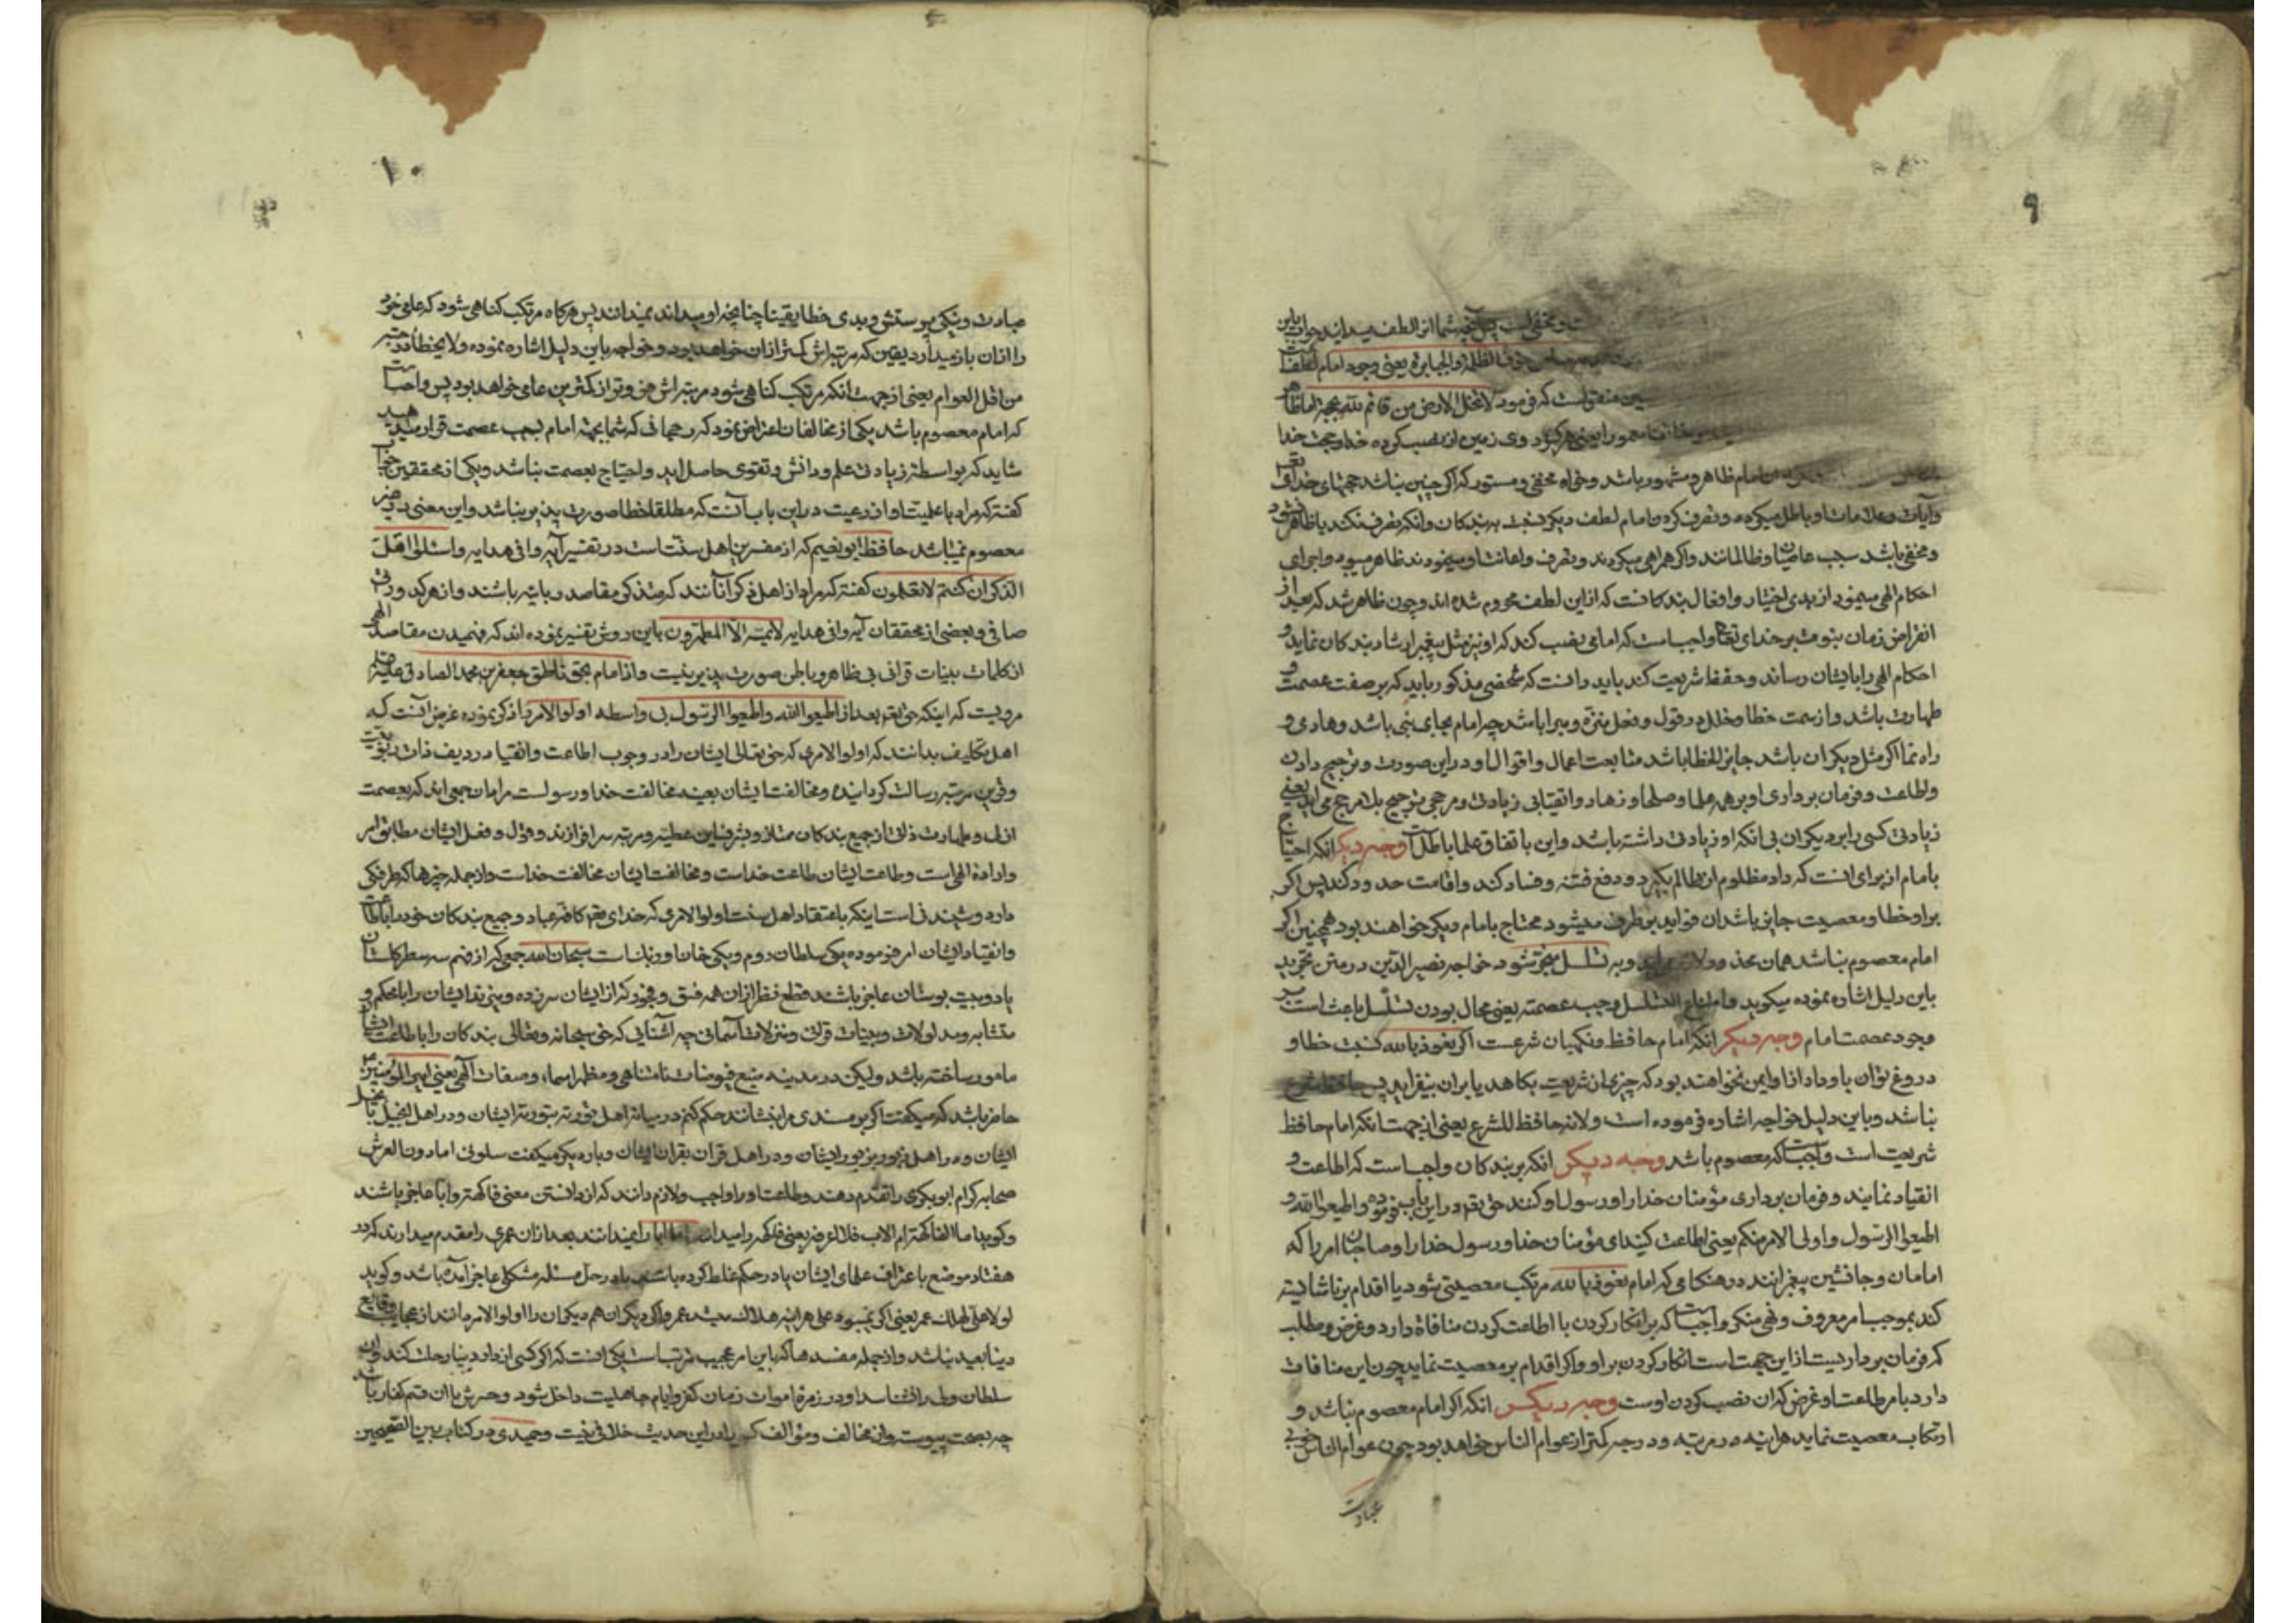 ۹
لطف میدانید جواب باین
خوف الظلمة والجبابرة یعنی وجود امام لطف
است که فرمود لا تخلو الارض من قائم لله بحجة اما ظاهر
روی زمین از نصب کرده خدا و حجت خدا
امام ظاهر و مشهور باشد و خواه مخفی و مستور که اگر چنین نباشد حجتهای خدای تعالی
و آیات و علامات او باطل میگردد و تصرف کردن امام لطف دیگر نسبت به بندگان و آنکه تصرف نکند یا ظاهر نشود
و مخفی باشد سبب عاصیان و ظالمانند و اگر همراهی میکردند و تصرف و اعانت او مینمودند ظاهر میبود و اجرای
احکام الهی مینمود از بدی اختیار و افعال بندگانست که از این لطف محروم شده اند و چون ظاهر شد که بعد از
انقراض زمان نبوت بر خدای تعالی واجب است که امامی نصب کند که او نیز مثل پیغمبر ارشاد بندکان نماید و
احکام الهی را بایشان رساند و حفظ شریعت کند باید دانست که شخصی مذکور باید که بر صفت عصمت و
طهارت باشد و از سمت خطا و خلل در قول و فعل منزه و مبرا باشد چه امام بجای نبی باشد و هادی و
راه نما اگر مثل دیکران باشد جایز الخطا باشد متابعت اعمال و اقوال او در این صورت و ترجیح دادن
و اطاعت و فرمان برداری او بر همه علما و صلحا و زهاد و اتقیا بی زیادتی و مرجحی ترجیح بلا مرجح می آید یعنی
زیادتی کسی را بر دیکران بی آنکه او زیادتی داشته باشد و این باتفاق علما باطل است وجه دیکر آنکه احتیاج
بامام از برای آنست که داد مظلوم از ظالم بگیرد و دفع فتنه و فساد کند و اقامت حدود کند پس اگر
بر او خطا و معصیت جایز باشد آن فواید بر طرف میشود و محتاج بامام دیگر خواهند بود همچنین اگر
امام معصوم نباشد همان محذور لازم و به تسلسل منجر شود خواجه نصیر الدین در متن تجرید
باین دلیل اشاره نموده میگوید و امتناع التسلسل یوجب عصمته یعنی محال بودن تسلسل باعث است بر
وجود عصمت امام وجه دیکر آنکه امام حافظ و نکهبان شرعست اگر نعوذ بالله نسبت خطا و
دروغ توان باو داد از او ایمن نخواهند بود که چیزی از شریعت بکاهد یا بر آن بیفزاید پس حافظ شرع
نباشد و باین دلیل خواجه اشاره فرموده است ولانه حافظ للشرع یعنی از جهت آنکه امام حافظ
شریعت است واجبست که معصوم باشد وجه دیکر آنکه بر بندکان واجب است که اطاعت و
انقیاد نمایند و فرمان برداری مؤمنان خدا را و رسول او کنند حق تعالی در این باب فرموده و اطیعوا الله و
اطیعوا الرسول و اولی الامر منکم یعنی اطاعت کنید ای مؤمنان خدا و رسول خدا را و صاحبان امر را که
امامان و جانشین پیغمبرانند در هنکامی که امام نعوذ بالله مرتکب معصیتی شود یا اقدام بر ناشایسته
کند بموجب امر معروف و نهی منکر واجبست که بر او انکار کردن با اطاعت کردن منافاة دارد و غرض و مطلب
که فرمان برداریست از این جهت است انکار کردن بر او و اگر اقدام بر معصیت نماید چون این منافات
دارد با امر بطاعت او غرض که از نصب کردن اوست وجه دیکر آنکه اگر امام معصوم نباشد و
ارتکاب معصیت نماید هر آینه در مرتبه و درجه کمتر از عوام الناس خواهد بود چون عوام الناس خوبی
عبادت
۱۰
عبادت و نیکی پرستش و بدی خطا یقینا چنانچه او میداند نمیدانند پس هرکاه مرتکب کناهی شود که علمی خود
را از آن باز میدارد یقین که مرتبه اش کمتر از آن خواهد بود و خواجه باین دلیل اشاره نموده ولا یخطأ درجته
من اقل العوام یعنی از جهت آنکه مرتکب کناهی شود مرتبه اش فروتر از کمترین عامی خواهد بود پس واجبست
که امام معصوم باشد یکی از مخالفان اعتراض نمود که رجحانی که شما بجهة امام بسبب عصمت قرار میدهید
شاید که بواسطه زیادتی علم و دانش و تقوی حاصل آید و احتیاج بعصمت نباشد و یکی از محققین جواب
گفته که مراد با علمیت او از رعیت در این باب آنست که مطلقا خطا صورت پذیر نباشد و این معنی در غیر
معصوم نمیباشد حافظ ابو نعیم که از مفسرین اهل سنت است در تفسیر آیه وافی هدایه واسئلوا اهل
الذکر ان کنتم لا تعلمون گفته که مراد از اهل ذکر آنانند که متذکر مقاصد ربانیه باشند و از هر کدورتی
صافی و بعضی از محققان آیه وافی هدایه لا یمسه الا المطهرون باین روش تفسیر نموده اند که فهمیدن مقاصد الهی
از کلمات بینات قرانی بی ظاهر و باطن صورت پذیر نیست و از امام بحق ناطق جعفر بن محمد الصادق علیه
مرویست که اینکه حق تعالی بعد از اطیعوا الله و اطیعوا الرسول بی واسطه اولو الامر را ذکر نموده غرض آنست که
اهل تکالیف بدانند که اولو الامری که حق تعالی ایشان را در وجوب اطاعت و انقیاد ردیف ذات ربوبیت
و قرین مرتبه رسالت کردانیده و مخالفت ایشان بعینه مخالفت خدا و رسولست مر امان جمعی اند که بعصمت
ازلی و طهارت ذاتی از جمیع بندکان ممتاز و بشرف این عطیه و مرتبه سرافرازند و قول و فعل ایشان مطابق امر
و اراده الهی است و طاعت ایشان طاعت خداست و مخالفت ایشان مخالفت خداست و از جمله چیزها که طرفکی
دارد و شنیدنی است اینکه باعتقاد اهل سنت اولو الامری که خدای تعالی کافه عباد و جمیع بندکان خود را باطاعت
و انقیاد ایشان امر فرموده یکی سلطان روم و یکی خان اوزبک است سبحان الله جمعی که از فهم سه سطر کلستان
یا دو بیت بوستان عاجز باشند قطع نظر از آن همه فسق و فجور که از ایشان سر زده و میزند ایشان را با محکم و
متشابه و مدلولات و بینات قرآنی و منزلات آسمانی چه آشنایی که حق سبحانه و تعالی بندکان را باطاعت ایشان
مامور ساخته باشد و لیکن در مدینه منبع فیوضات نامتناهی و مظهر اسماء و صفات الهی یعنی امیر المؤمنین
حاضر باشد که میکفت اگر بر مسندی مرا بنشانند حکم کنم در میانه اهل توریة بتوریة ایشان و در اهل انجیل بانجیل
ایشان و در اهل زبور بزبور ایشان و در اهل قرآن بقرآن ایشان و باره دیکر میکفت سلونی عما دون العرش
صحابه کرام ابو بکری را تقدم دهند و طاعت او را واجب و لازم دانند که از دانستن معنی فاکهة و ابا عاجز باشند
و کوید اما الفاکهة ام الاب فلا اعرف یعنی فاکهه را میدانند اما ابا را نمیدانند بعد از آن عمری را مقدم میدارند که در
هفتاد موضع با عتراف علمای ایشان یا در حکم غلط کرده باشند یا در حل مسئله مشکلی عاجز آمده باشد و کوید
لولا علی لهلک عمر یعنی اگر نمیبود علی هر آینه هلاک میشد عمر و اگر دیکران هم دیکران را اولو الامر مانند از عجایب وقایع
دنیا بعید نباشد و از جمله مفسدها که باین امر عجیب مرتب است یکی آنست که اگر کسی از دار دنیا رحلت کند و آن
سلطان ولی را نشناسد او در زمره اموات زمان کفر و ایام جاهلیت داخل شود و حشرش با آن قسم کفار باشد
چه بصحت پیوسته و از مخالف و مؤالف کسی را در این حدیث خلافی نیست و حمیدی در کتاب بین الصحیحین